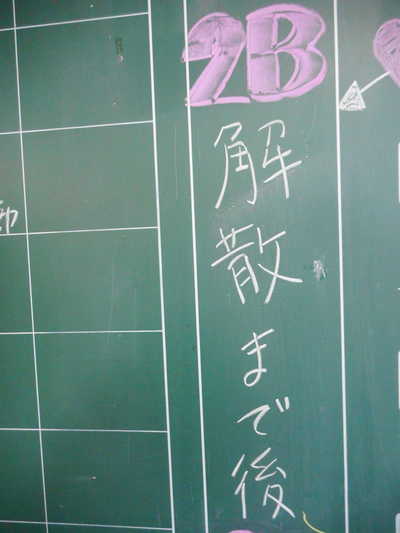 2B
解散まで後